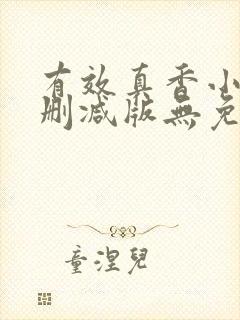 有效真香小
删减版無免
童涅兒